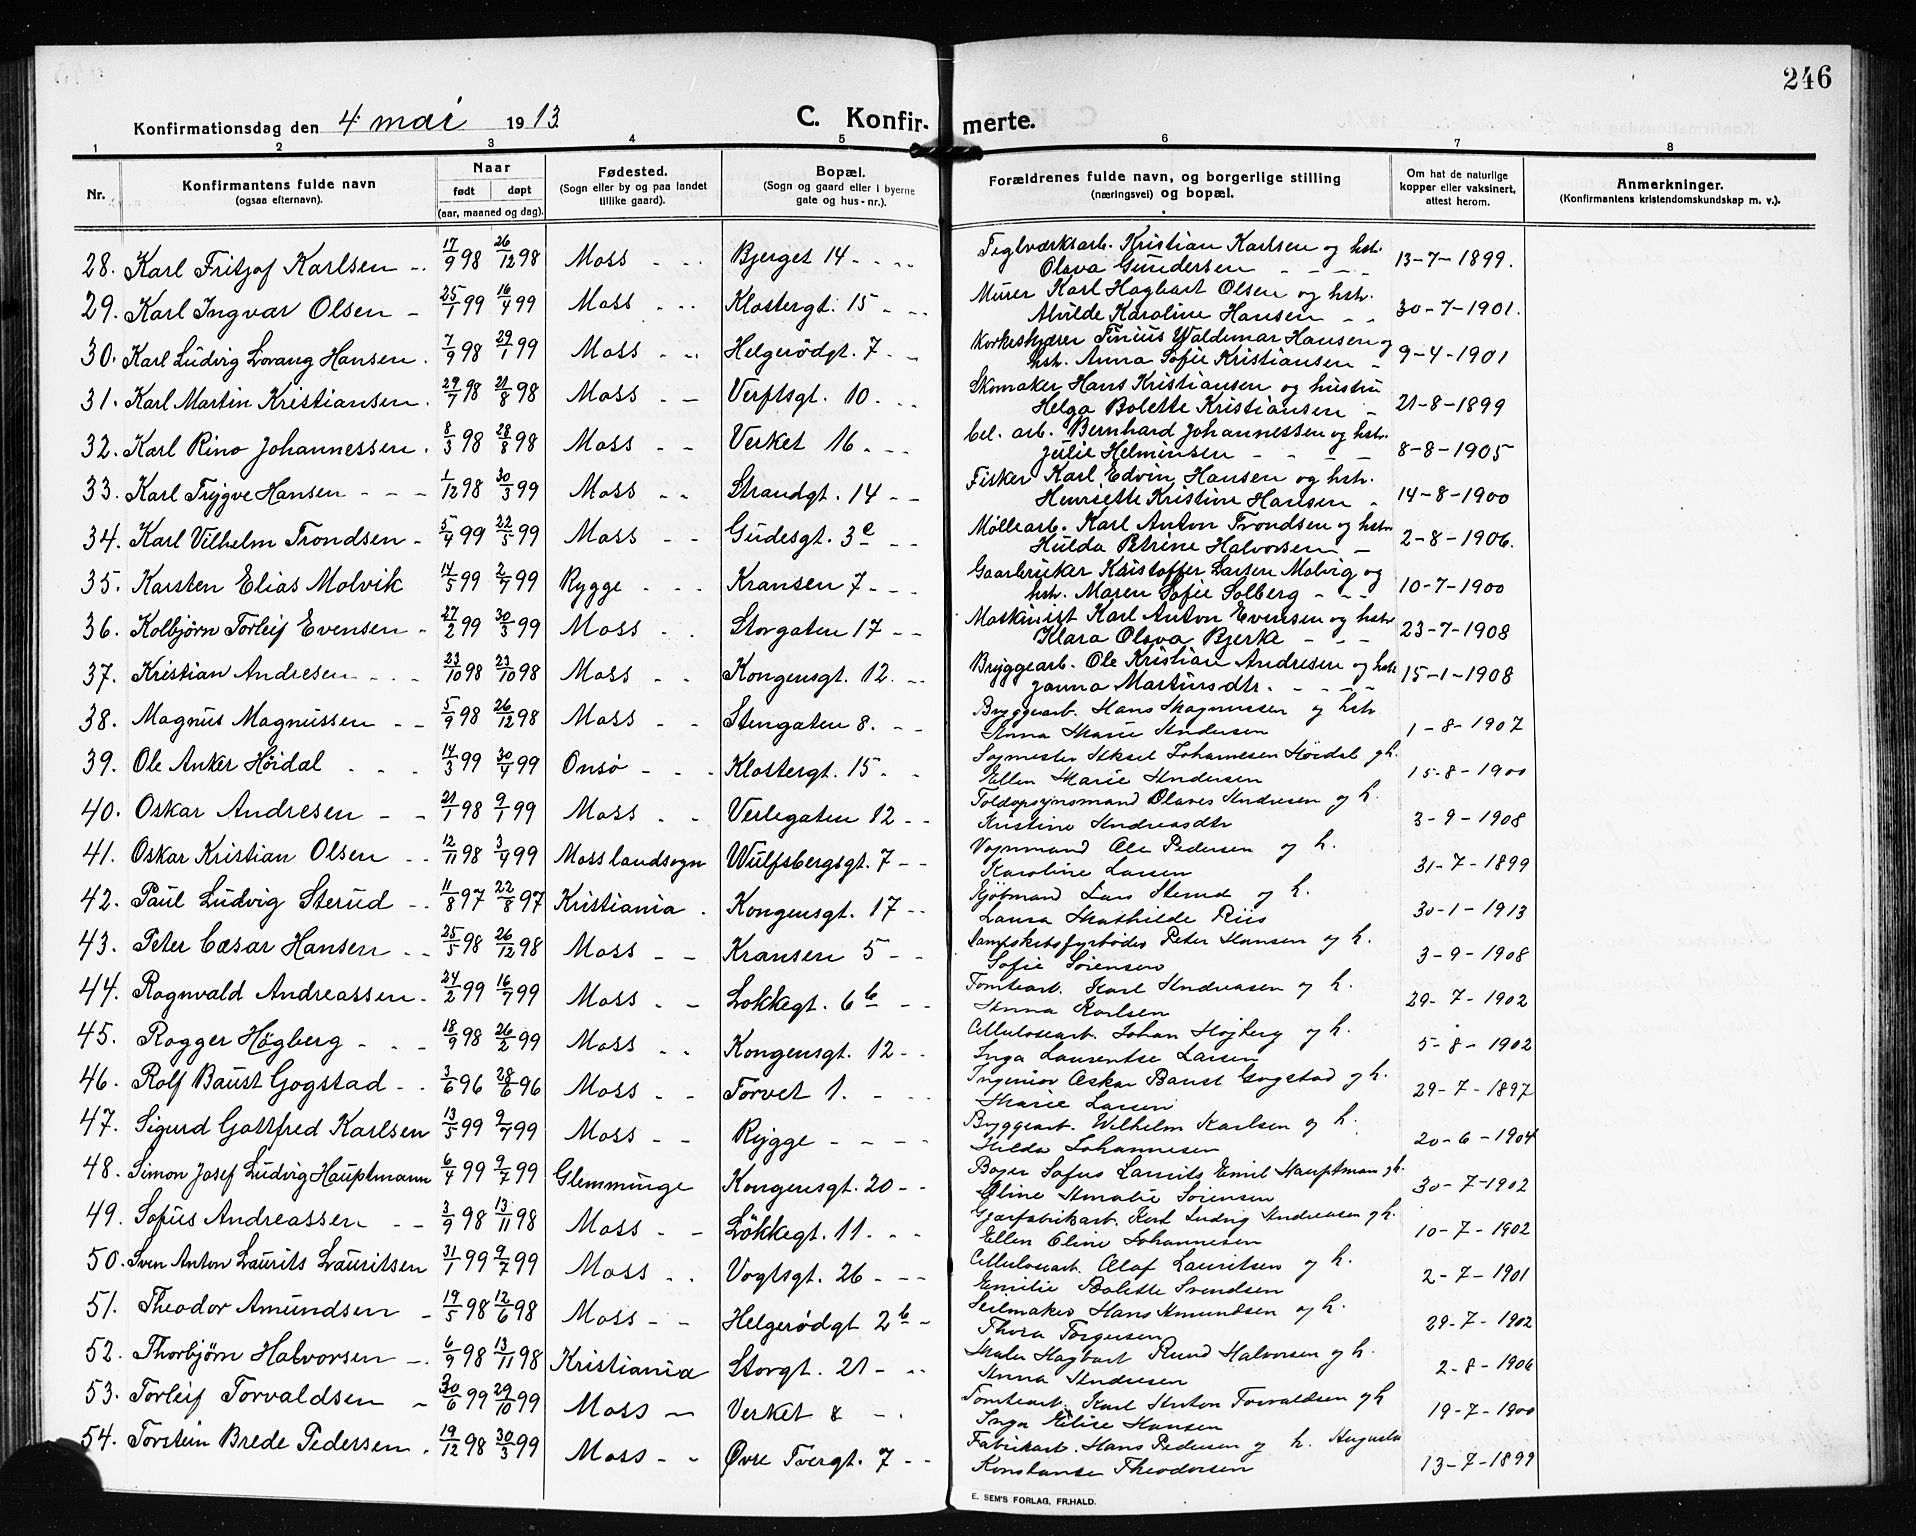 246
Konfirmationsdag den 4 mai 1913
C. Konfirmerte.
1 2 3 4 5 6 7 8
Nr. Konfirmantens fulde navn (ogsaa efternavn). Naar født døpt (aar, maaned og dag). Fødested. (Sogn eller by og paa landet tillike gaard). Bopæl. (Sogn og gaard eller i byerne gate og hus-nr.). Forældrenes fulde navn, og borgerlige stilling (næringsvei) og bopæl. Om hat de naturlige kopper eller vaksinert, attest herom. Anmerkninger. (Konfirmantens kristendomskundskap m. v.).
28. Karl Fritjof Karlsen 17/9 98 26/12 98 Moss Bjerget 14 Teglværksarb. Kristian Karlsen og hst. Olava Gundersen 13-7-1899.
29. Karl Ingvar Olsen 25/1 99 16/4 99 Moss Klostergt. 15 Murer Karl Hagbart Olsen og hstr. Alvilde Karoline Hansen 30-7-1901.
30. Karl Ludvig Lorang Hansen 7/9 98 29/1 99 Moss Helgerødgt. 7 Korkeskjærer Tinius Waldemar Hansen og hst. Anna Sofie Kristiansen 9-4-1901
31. Karl Martin Kristiansen 29/7 98 21/8 98 Moss Verftsgt. 10 Skomaker Hans Kristiansen og hustru Helga Bolette Kristiansen 21-8-1899
32. Karl Rino Johannessen 8/3 98 28/8 98 Moss Verket 16 Cel. arb. Bernhard Johannessen og hstr. Julie Helminsen 8-8-1905
33. Karl Trygve Hansen 1/12 98 30/3 99 Moss Strandgt. 14 Fisker Karl Edvin Hansen og hstr. Henriette Kristine Hansen 14-8-1900
34. Karl Vilhelm Trondsen 5/4 99 22/5 99 Moss Gudesgt. 3c Møllearb. Karl Anton Trondsen og hstr Hulda Petrine Halvorsen 2-8-1906.
35. Karsten Elias Molvik 14/5 99 2/7 99 Rygge Kransen 7 Gaarbruker Kristoffer Larsen Molvig og hst. Maren Sofie Solberg 10-7-1900
36. Kolbjørn Torleif Evensen 27/2 99 30/3 99 Moss Storgaten 17 Maskinist Karl Anton Evensen og hstr Klara Olava Bjerke 23-7-1908
37. Kristian Andresen 23/10 98 23/10 98 Moss Kongensgt. 12 Bryggearb. Ole Kristian Andresen og hstr Janna Martinsdtr. 15-1-1908
38. Magnus Magnussen 5/9 98 26/12 98 Moss Stengaten 8. Bryggearb. Hans Magnussen og hstr Anna Marie Andersen 1-8-1907
39. Ole Anker Høidal 14/3 99 30/4 99 Onsø Klostergt. 15 Sagmester Aksel Johannesen Höidal og h. Ellen Marie Andersen 15-8-1900
40. Oskar Andresen 21/1 98 9/1 99 Moss Verlegaten 12 Toldopsynsmand Olaves Andresen og h. Kristine Andreasdtr 3-9-1908
41. Oskar Kristian Olsen 12/11 98 3/4 99 Moss landsogn Wulfsbergsgt. 7 Vognmand Ole Pedersen og h. Karoline Larsen 31-7-1899
42. Paul Ludvig Sterud 11/8 97 22/8 97 Kristiania Kongensgt. 17 Kjøbmand Lars Sterud og h. Laura Mathilde Riis 30-1-1913
43. Peter Cæsar Hansen 25/5 98 26/12 98 Moss Kransen 5 Dampskibsfyrbøder Peter Hansen og h. Sofie Sörensen 3-9-1908
44. Ragnvald Andreassen 24/2 99 16/7 99 Moss Løkkegt. 6b Tomtearb. Karl Andreasen og h. Anna Karlsen 29-7-1902
45. Rogger Høgberg 18/9 98 26/2 99 Moss Kongensgt. 12 Cellulosearb. Johan Højberg og h. Inga Laurentse Larsen 5-8-1902
46. Rolf Baust Gogstad 3/6 96 28/6 96 Moss Torvet 1. Ingeniør Oskar Baust Gogstad og h. Marie Larsen 29-7-1897
47. Sigurd Gottfred Karlsen 13/5 99 9/7 99 Moss Rygge Bryggearb. Wilhelm Karlsen og h. Hilda Johannesen 20-6-1904
48. Simon Josef Ludvig Hauptmann 6/4 99 9/7 99 Glemminge Kongensgt. 20 Bager Sofus Laurits Emil Hauptman og h. Oline Amalie Sörensen 30-7-1902
49. Sofus Andreassen 3/9 98 13/11 98 Moss Løkkegt. 11. Gjærfabrikarb. Karl Ludvig Andreasen og h. Ellen Oline Johannesen 10-7-1902
50. Sven Anton Laurits Lauritsen 31/1 99 9/7 99 Moss Vogtsgt. 26 Cellulosearb. Olaf Lauritsen og h. Emilie Bolette Svendsen 2-7-1901
51. Theodor Amundsen 19/5 98 12/6 98 Moss Helgerødgt 2b Seilmaker Hans Amundsen og h. Thora Torgersen 29-7-1902
52. Thorbjørn Halvorsen 6/9 98 13/11 98 Kristiania Storgt. 21 Maler Hagbart Rund Halvorsen og h. Anna Andresen 2-8-1906
53. Torleif Torvaldsen 30/6 99 29/10 99 Moss Verket 8 Tomtearb. Karl Anton Torvaldsen og h Inga Elise Hansen 19-7-1900
54. Torstein Brede Pedersen 19/12 98 30/3 99 Moss Øvre Tvergt. 7 Fabrikarb. Hans Pedersen og h. Augusta Konstanse Theodorsen 13-7-1899
E. SEM'S FORLAG, FR.HALD.